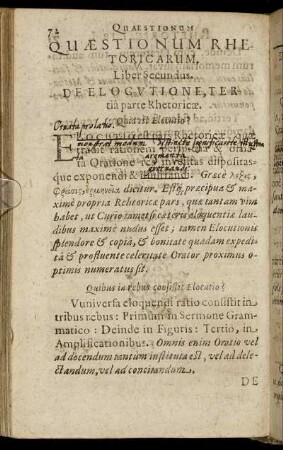 72 QUAESTIONUM
QUÆSTIONUM RHE
TORICARUM,
Liber Secundus.
DE ELOCVTIONE, TER
tiâ parte Rhetoricæ.
Quid est Elocutio?
Ornata prolatio.
ELocutio est pars Rhetoricæ, quæ
tradit rationem
in Oratione res inventas dispositasque
exponendi & Græcè λέξις,
φράσις, ἑρμηνεία dicitur. Estque præcipua & maximè
propria Rhetoricæ pars, quæ tantam vim
habet, ut Curio tametsi cæteris eloquentiæ laudibus
maximè nudus esset; tamen Elocutionis
splendore & copiâ, & bonitate quadam expedita
& profluente celeritate Orator proximus optimis
numeratus sit.
Quibus in rebus consistit Elocutio?
Vniversa eloquendi ratio consistit in
tribus rebus: Primum in Sermone Grammatico:
Deinde in Figuris: Tertiò, in
Amplificationibus. Omnis enim Oratio vel
ad docendum tantùm instituta est, vel ad delectandum,
vel ad concitandum.
DE